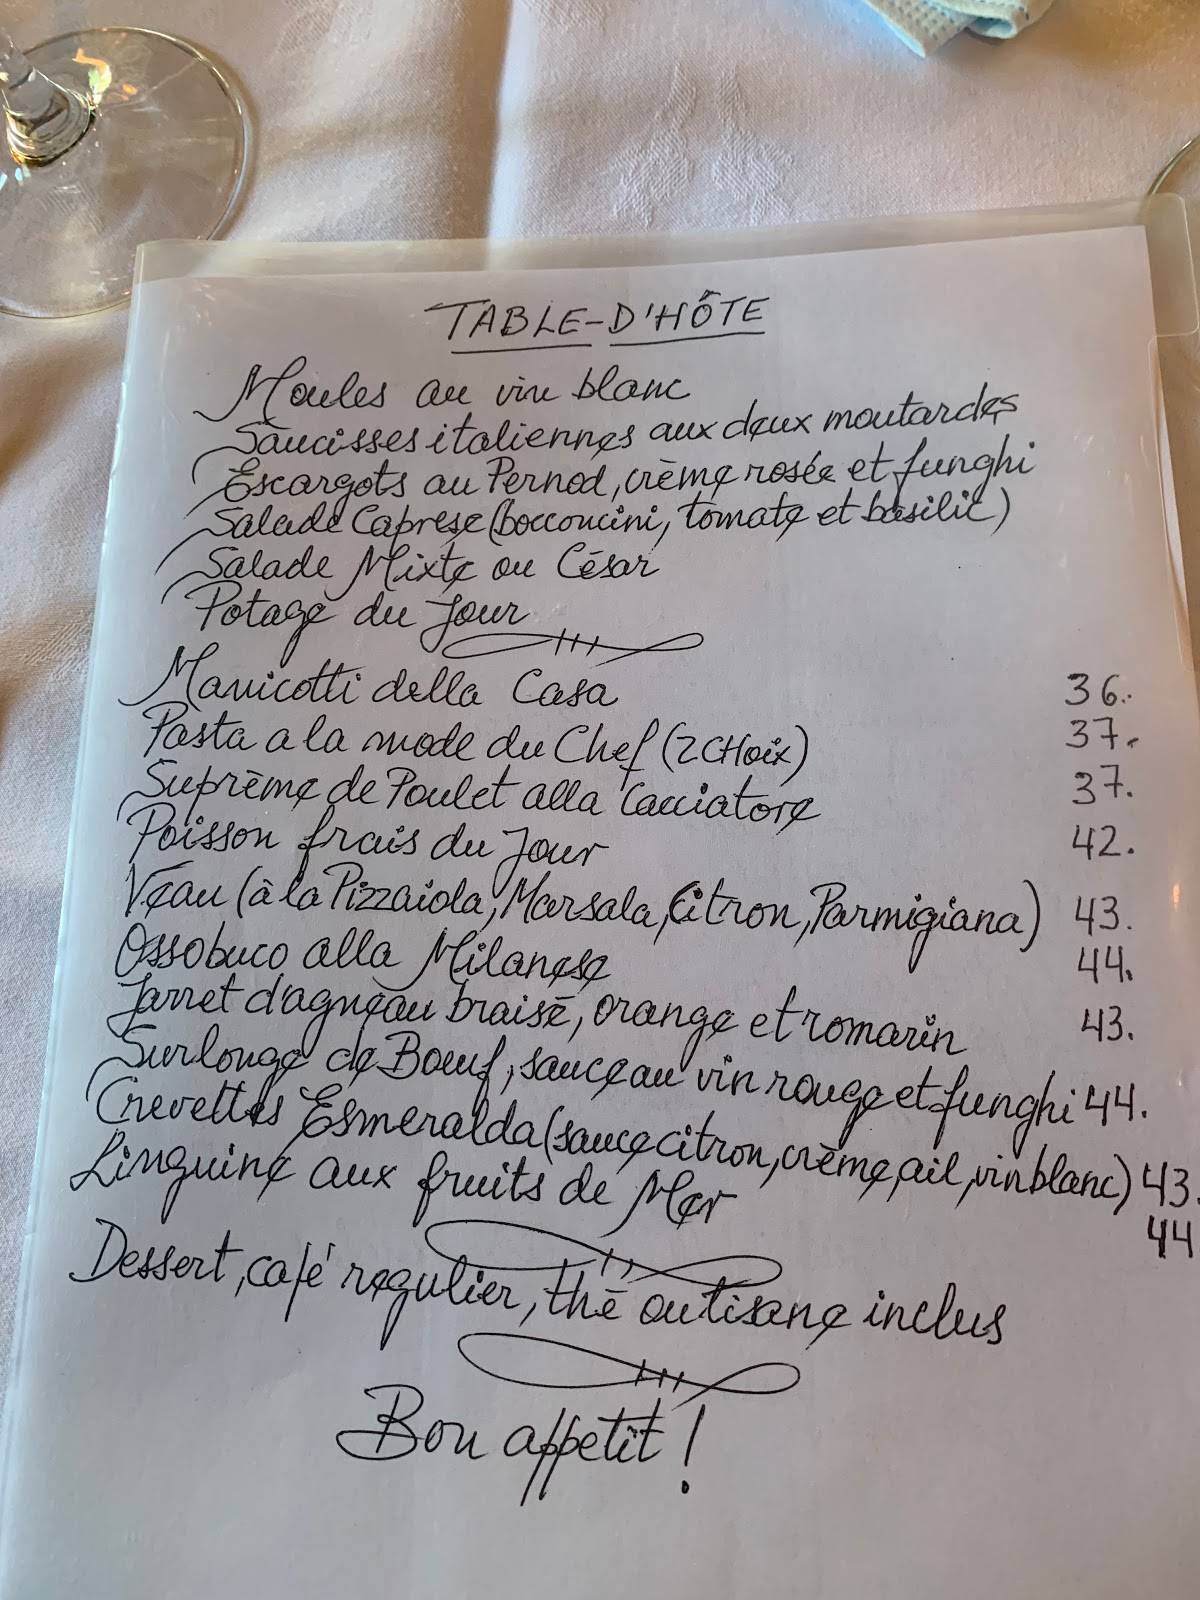 TABLE-D'HÔTE
Moules au vin blanc
Saucisses italiennes aux deux moutardes
Escargots au Pernod, crème rosée et funghi
Salade Caprese (bocconcini, tomate et basilic)
Salade Mixte ou César
Potage du Jour
Manicotti della Casa 36.
Pasta a la mode du Chef (2 CHoix) 37.
Suprème de Poulet alla Cacciatore 37.
Poisson frais du Jour 42.
Veau (à la Pizzaiola, Marsala, Citron, Parmigiana) 43.
Ossobuco alla Milanese 44.
Jarret d'agneau braisé, orange et romarin 43.
Surlonge de Bœuf, sauce au vin rouge et funghi 44.
Crevettes Esmeralda (sauce citron, crème, ail, vin blanc) 43.
Linguine aux fruits de Mer 44
Dessert, café régulier, thé ou tisane inclus
Bon appetit !